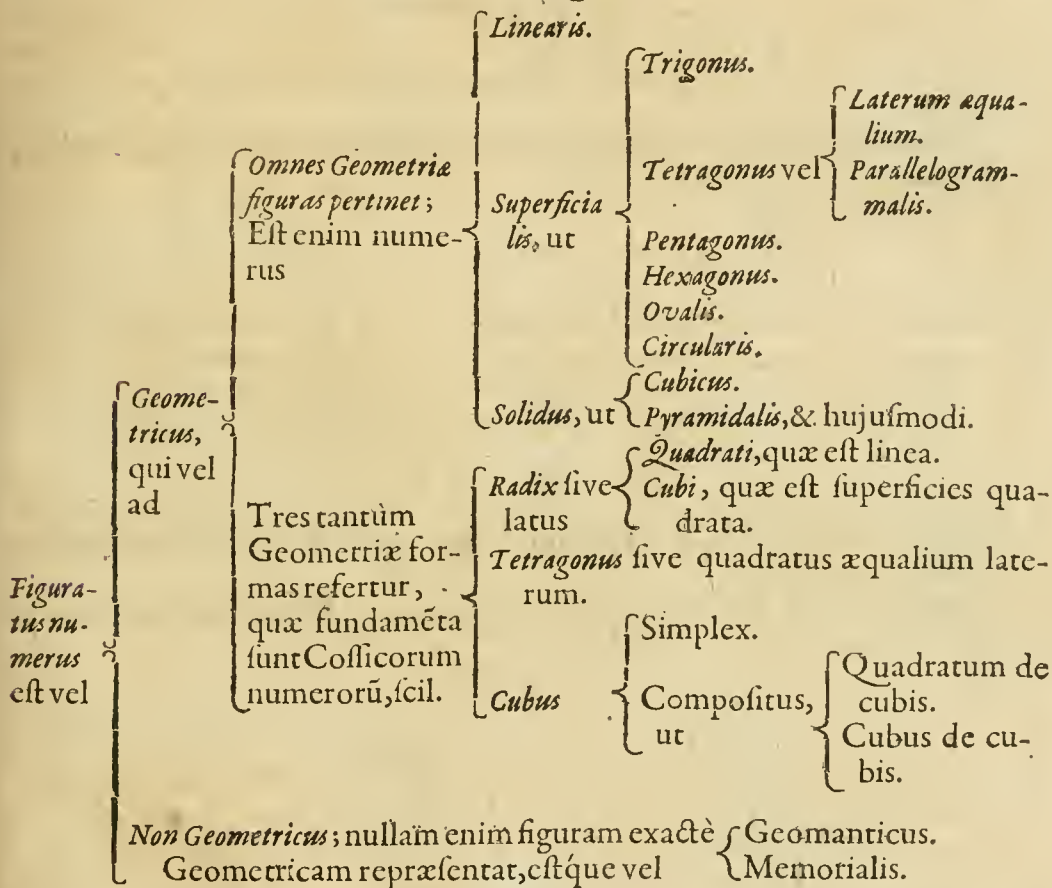 Figura-
tus nu-
merus
eſt vel
Geome-
tricus,
qui vel
ad
Omnes Geometriæ
figuras pertinet;
Eſt enim nume-
rus
Linearis.
Superficia
lis, ut
Trigonus.
Tetragonus vel
Laterum æqua-
lium.
Parallelogram-
malis.
Pentagonus.
Hexagonus.
Ovalis.
Circularis.
Solidus, ut
Cubicus.
Pyramidalis, & hujuſmodi.
Tres tantùm
Geometriæ for-
mas refertur,
quæ fundamẽta
ſunt Coſſicorum
numerorũ, ſcil.
Radix ſive
latus
Quadrati, quæ eſt linea.
Cubi, quæ eſt ſuperficies qua-
drata.
Tetragonus ſive quadratus æqualium late-
rum.
Cubus
Simplex.
Compoſitus,
ut
Quadratum de
cubis.
Cubus de cu-
bis.
Non Geometricus; nullam enim figuram exactè
Geometricam repræſentat, eſtque vel
Geomanticus.
Memorialis.